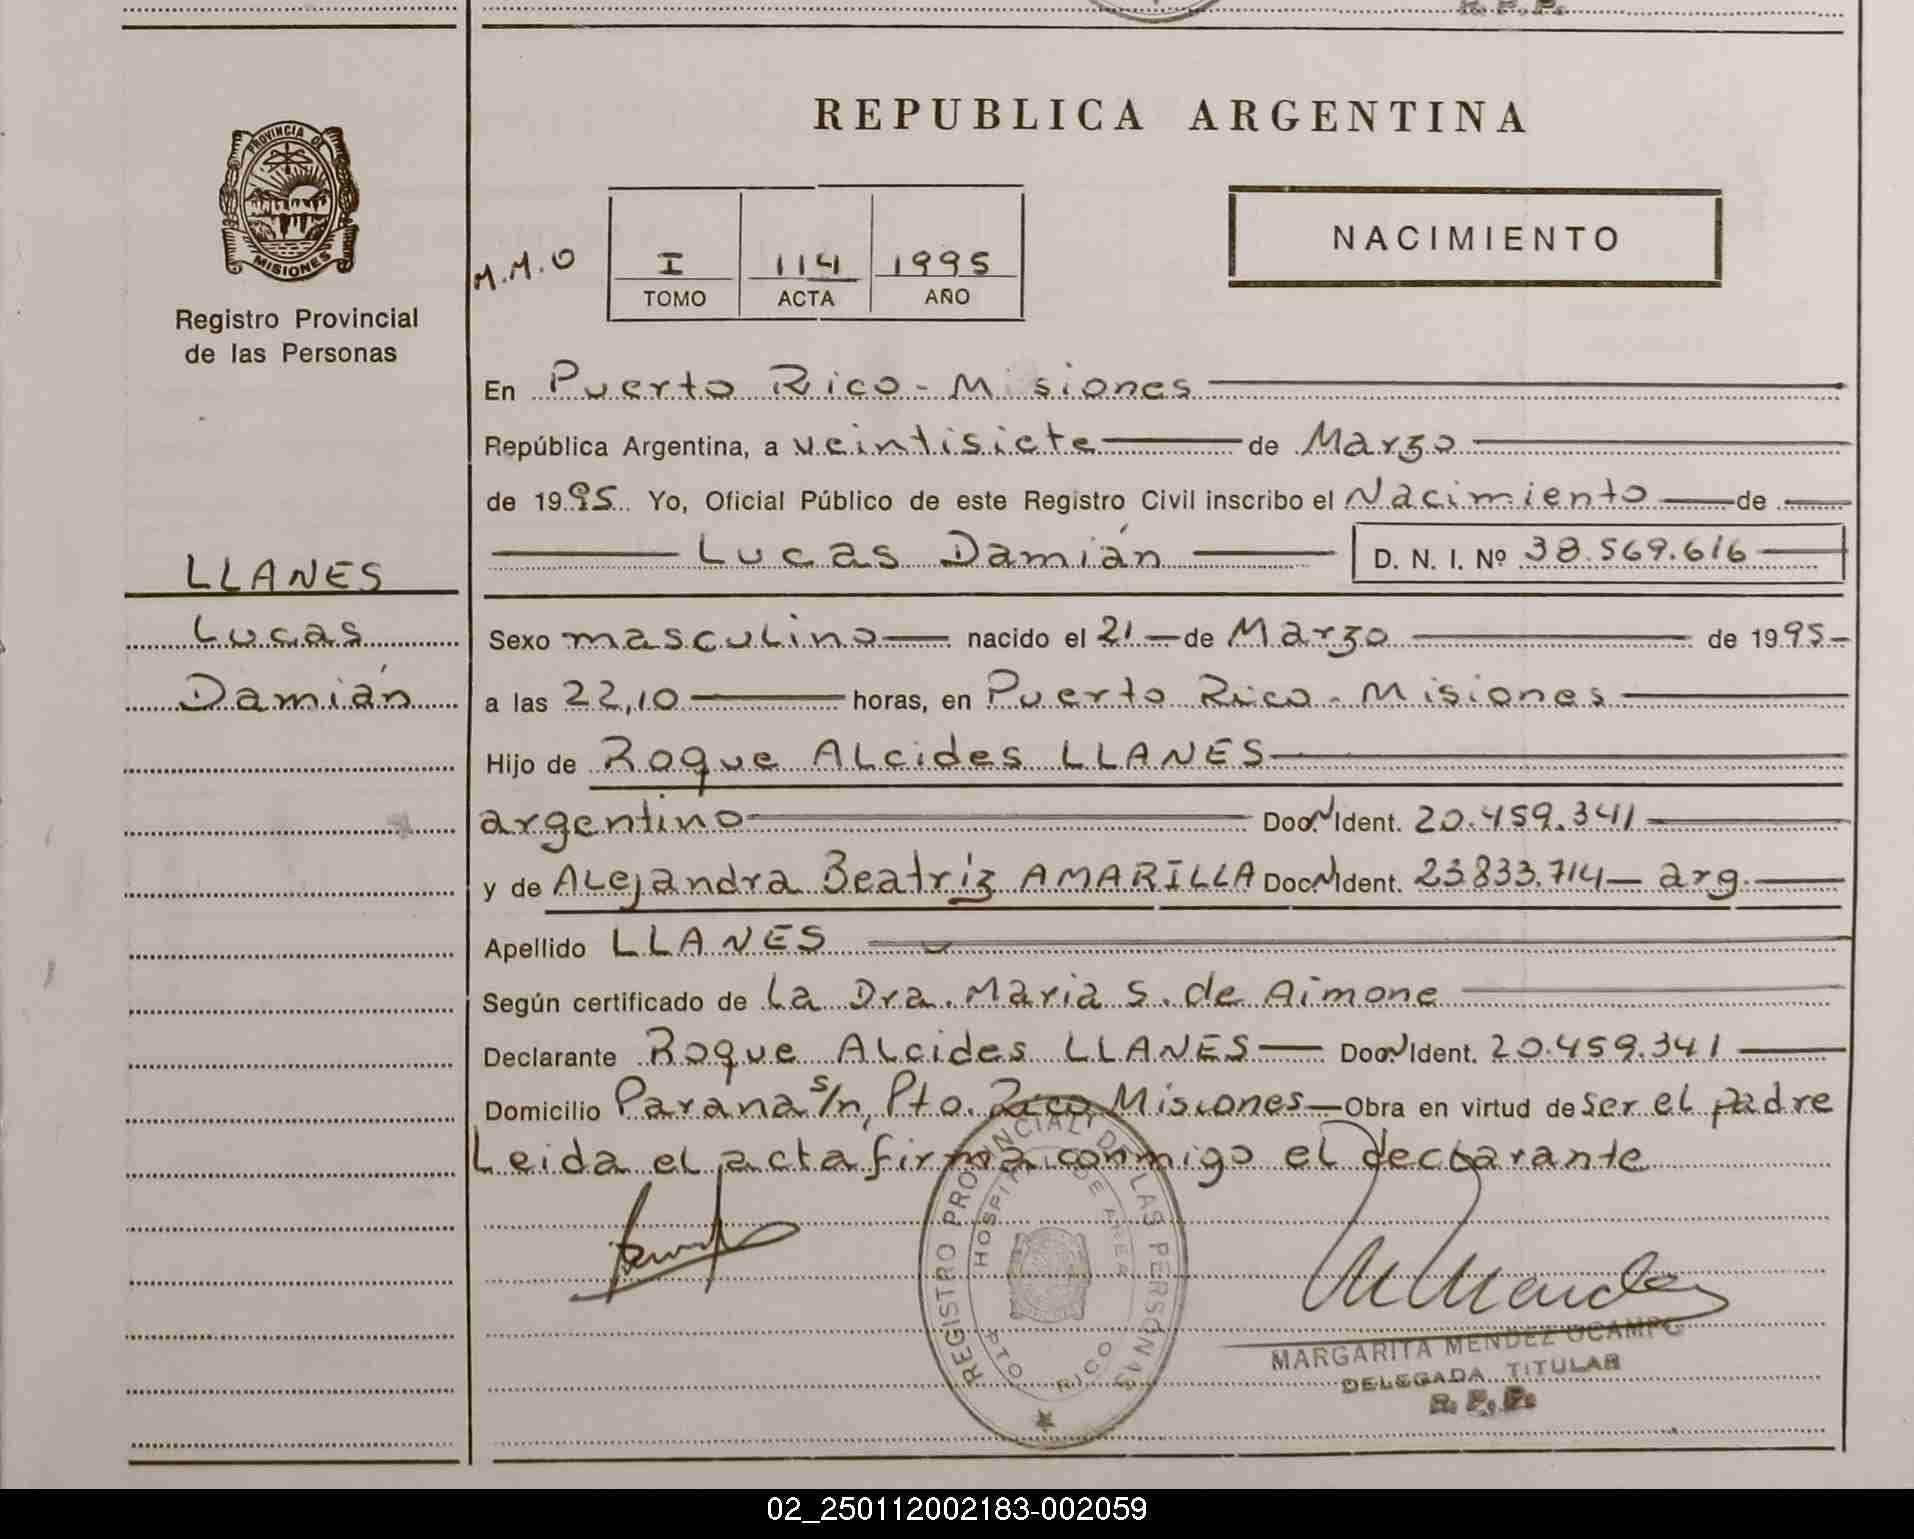 R. P. P.
REPUBLICA ARGENTINA
PROVINCIA DE
MISIONES
Registro Provincial
de las Personas
M.M.O
I 114 1995
TOMO ACTA AÑO
NACIMIENTO
En Puerto Rico - Misiones
República Argentina, a veintisiete de Marzo
de 1995 Yo, Oficial Público de este Registro Civil inscribo el Nacimiento de
Lucas Damián D. N. I. Nº 38.569.616
LLANES
Lucas
Damián
Sexo masculino nacido el 21 de Marzo de 1995
a las 22,10 horas, en Puerto Rico - Misiones
Hijo de Roque Alcides LLANES
argentino Doc. N Ident. 20.459.341
y de Alejandra Beatriz AMARILLA Doc N Ident. 23833.714 - arg.
Apellido LLANES
Según certificado de la Dra. Maria S. de Aimone
Declarante Roque Alcides LLANES Doc N Ident. 20.459.341
Domicilio Parana s/n, Pto. Rico, Misiones - Obra en virtud de ser el padre
Leida el acta firma conmigo el declarante
REGISTRO PROVINCIAL DE LAS PERSONAS
HOSPITAL DE AREA
PTO RICO
MARGARITA MENDEZ OCAMPO
DELEGADA TITULAR
R. P. P.
02_250112002183-002059